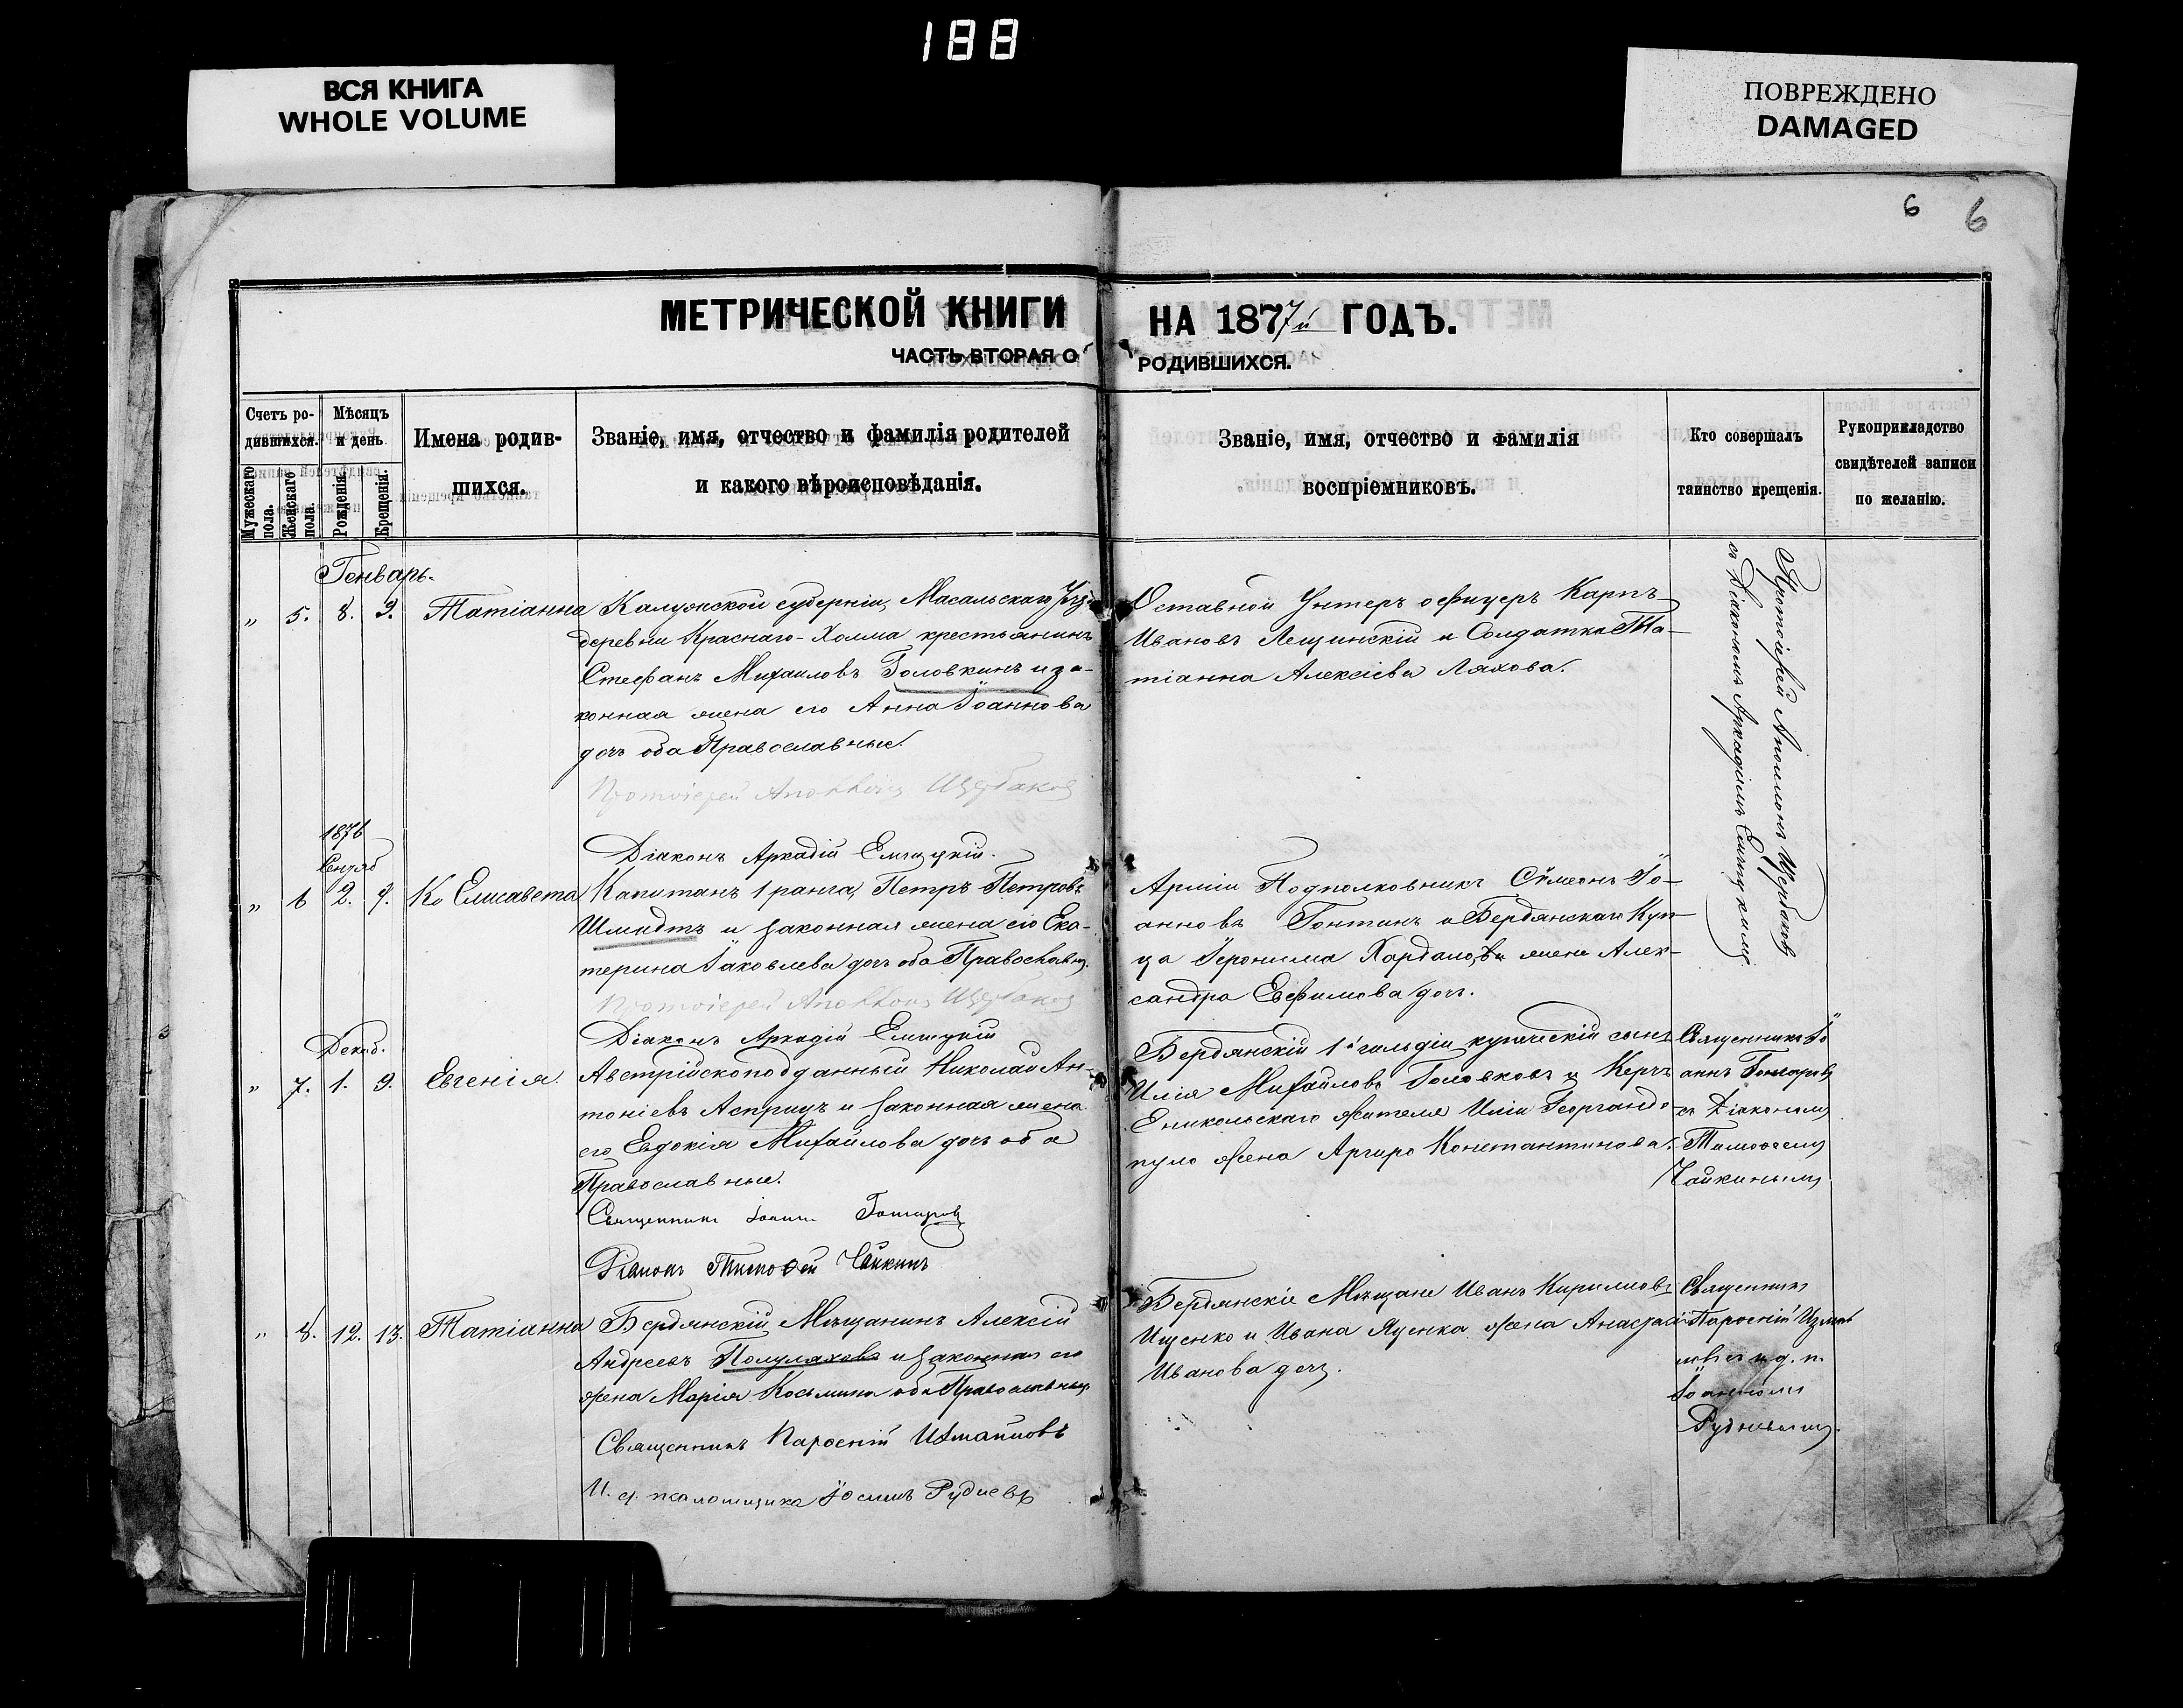 188
ВСЯ КНИГА
WHOLE VOLUME
ПОВРЕЖДЕНО
DAMAGED
6 6
МЕТРИЧЕСКОЙ КНИГИ НА 1877й ГОДЪ.
ЧАСТЬ ВТОРАЯ О РОДИВШИХСЯ.
Счетъ ро-
дившихся.
Мужескаго пола.
Женскаго пола.
Мѣсяцъ
и день
Рожденія.
Крещенія.
Имена родив-
шихся.
Званіе, имя, отчество и фамилія родителей
и какого вѣроисповѣданія.
Званіе, имя, отчество и фамилія
воспріемниковъ.
Кто совершалъ
таинство крещенія.
Рукоприкладство
свидѣтелей записи
по желанію.
Генварь.
„ 5. 8. 9. Татіанна
Калужской губерніи, Масальскаго
деревни Краснаго-Холма крестьянинъ
Стефанъ Михаиловъ Головкинъ и за-
конная жена его Анна Іоаннова
дочь оба Православные.
Протоіерей Аполлонъ Щербаковъ
Діаконъ Аркадій
Оставной Унтеръ офицеръ Карпъ
Ивановъ Лещинскій и Солдатка Та-
тіанна Алексіева Ляхова.
Протоіерей Аполлонъ Щербаковъ
съ Діакономъ Аркадіемъ
1876
„ 6 2. 9. Елисавета
Капитанъ 1 ранга, Петръ Петровъ
Шмидтъ и законная жена его Ека-
терина Іаковлева дочь оба Православн.
Протоіерей Аполлонъ Щербаковъ
Діаконъ Аркадій
Арміи Подполковникъ Сѵмеонъ Іо-
анновъ Гонтинъ и Бердянскаго Куп-
ца Іеронима жена Алек-
сандра Евфимова дочь.
Декаб.
„ 7. 1. 9. Евгенія.
Австрійскоподданный Николай Ан-
тоніевъ Асприцъ и законная жена
его Евдокія Михайлова дочь оба
Православные.
Священникъ Іоаннъ Гончаровъ
Діаконъ Тимофей Чайкинъ
Бердянскій 1й гильдіи купеческій сынъ
Илія Михайловъ Головковъ и Керчъ
Еникольскаго жителя Иліи Георгандо-
пуло жена Аргиро Константинова.
Священникъ Іо
аннъ Гончаровъ
съ Діакономъ
Тимофеемъ
Чайкинымъ
„ 8. 12. 13. Татіанна
Бердянскій Мѣщанинъ Алексій
Андреевъ Полуляховъ и законная его
жена Марія Косьмина оба Православные
Священникъ Пароеній Измаиловъ
И. д. псаломщика Рудневъ
Бердянскіе Мѣщане Иванъ Кириловъ
Ищенко и Ивана Яценка жена Анастасія
Иванова дочь.
Священникъ
Пароеній Измаи
ловъ съ и. д. п.
Рудневымъ.